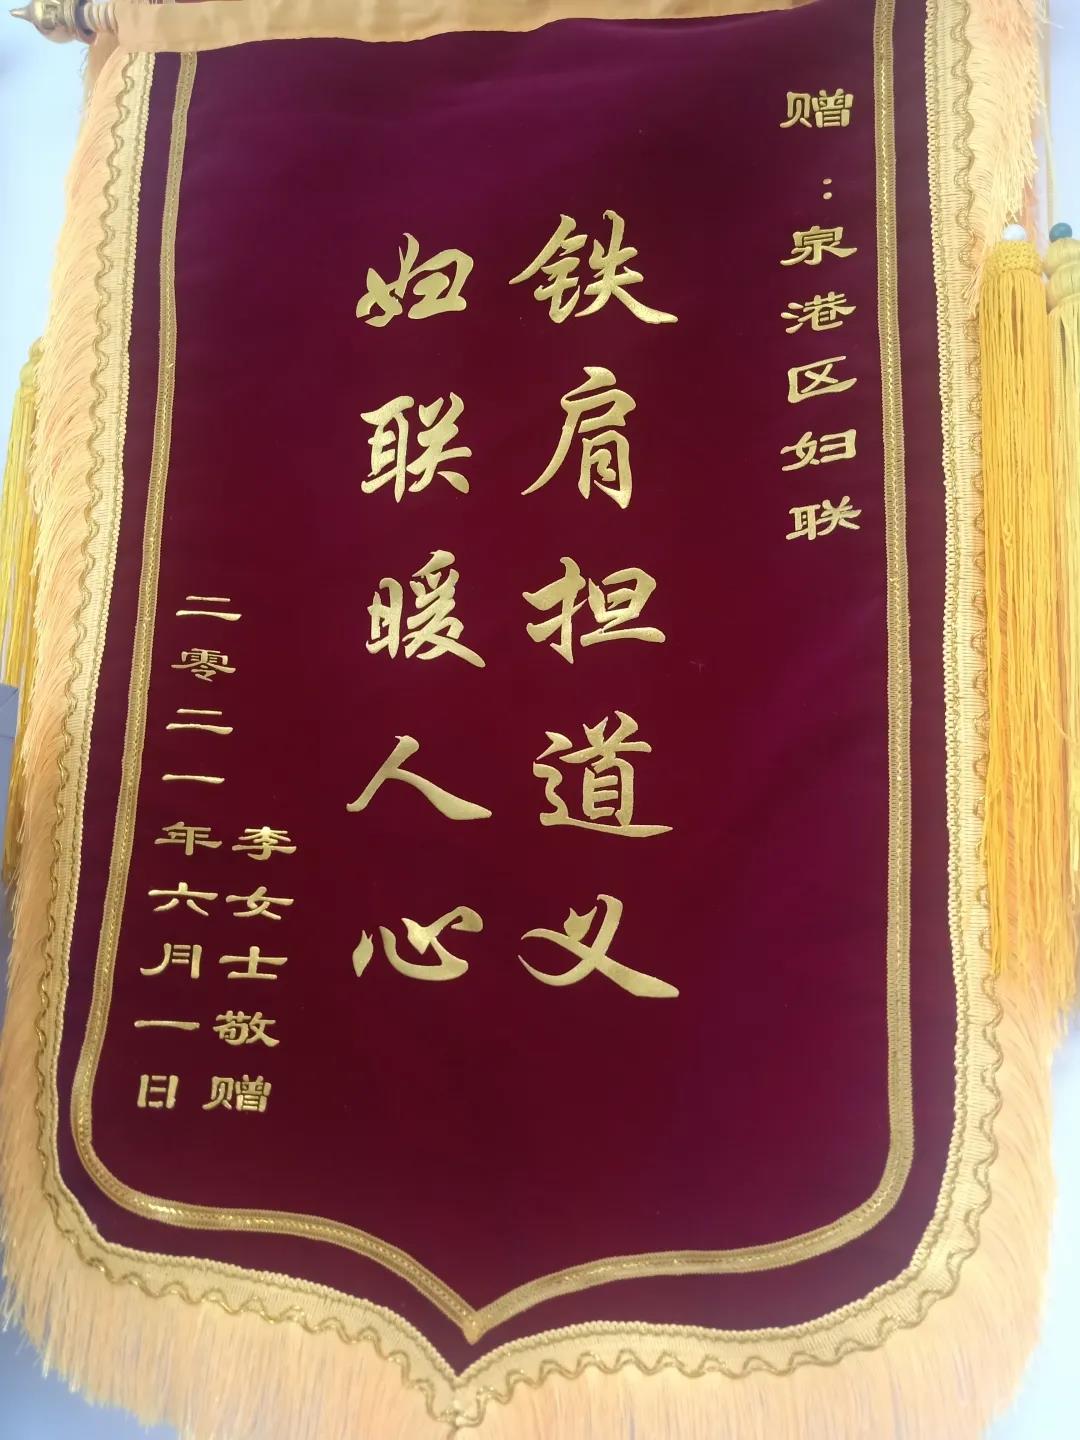 赠：泉港区妇联
铁肩担道义
妇联暖人心
李女士敬赠
二零二一年六月一日